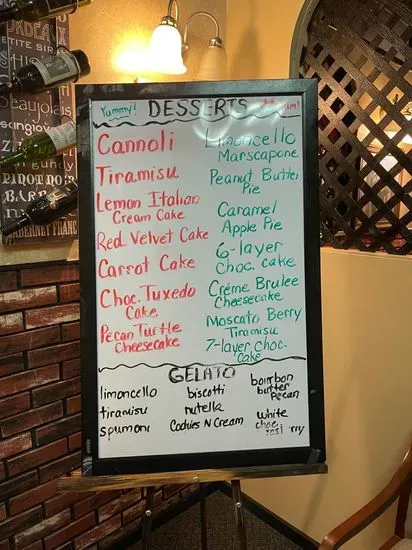 Yummy! DESSERTS
Cannoli
Tiramisu
Lemon Italian
Cream Cake
Red Velvet Cake
Carrot Cake
Choc. Tuxedo
Cake
Pecan Turtle
Cheesecake
Limoncello
Marscapone
Peanut Butter
Pie
Caramel
Apple Pie
6-layer
Choc. Cake
Crème Brulee
Cheesecake
Moscato Berry
Tiramisu
7-layer Choc.
Cake
GELATO
limoncello
tiramisu
spumoni
biscotti
nutella
Cookies N Cream
bourbon
butter
Pecan
white
choc.
PETITE SIRAH
Beaujolais
PINOT NOIR
CABERNET FRANC